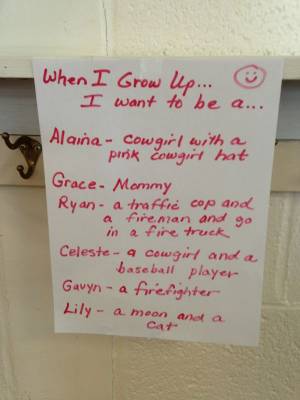 When I Grow Up...
I want to be a...
Alaina - cowgirl with a
pink cowgirl hat
Grace - Mommy
Ryan - a traffic cop and
a fireman and go
in a fire truck
Celeste - a cowgirl and a
baseball player
Gavyn - a firefighter
Lily - a moon and a
cat